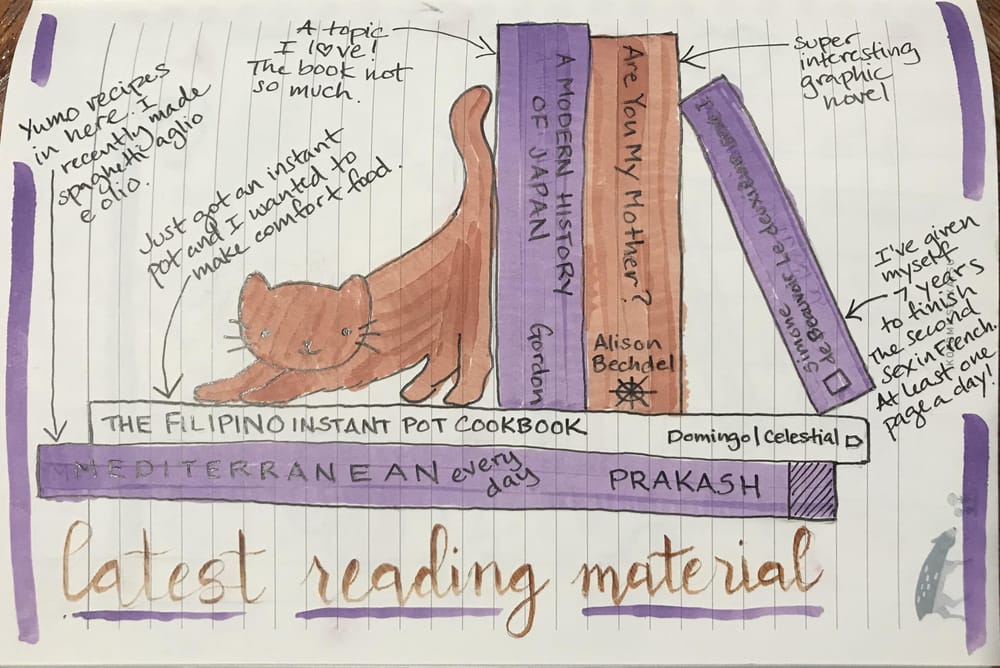 A topic
I l♡ve!
The book not
so much.
super
interesting
graphic
novel
Yumo recipes
in here. I
recently made
spaghetti aglio
e olio.
Just got an instant
pot and I wanted to
make comfort food.
A MODERN HISTORY
OF JAPAN
Gordon
Are You My Mother?
Alison
Bechdel
Simone
de Beauvoir
Le deuxième
I
I've given
myself
7 years
to finish
The second
sex in French.
At least one
page a day!
THE FILIPINO INSTANT POT COOKBOOK
Domingo | Celestial
MEDITERRANEAN every
day
PRAKASH
latest reading material